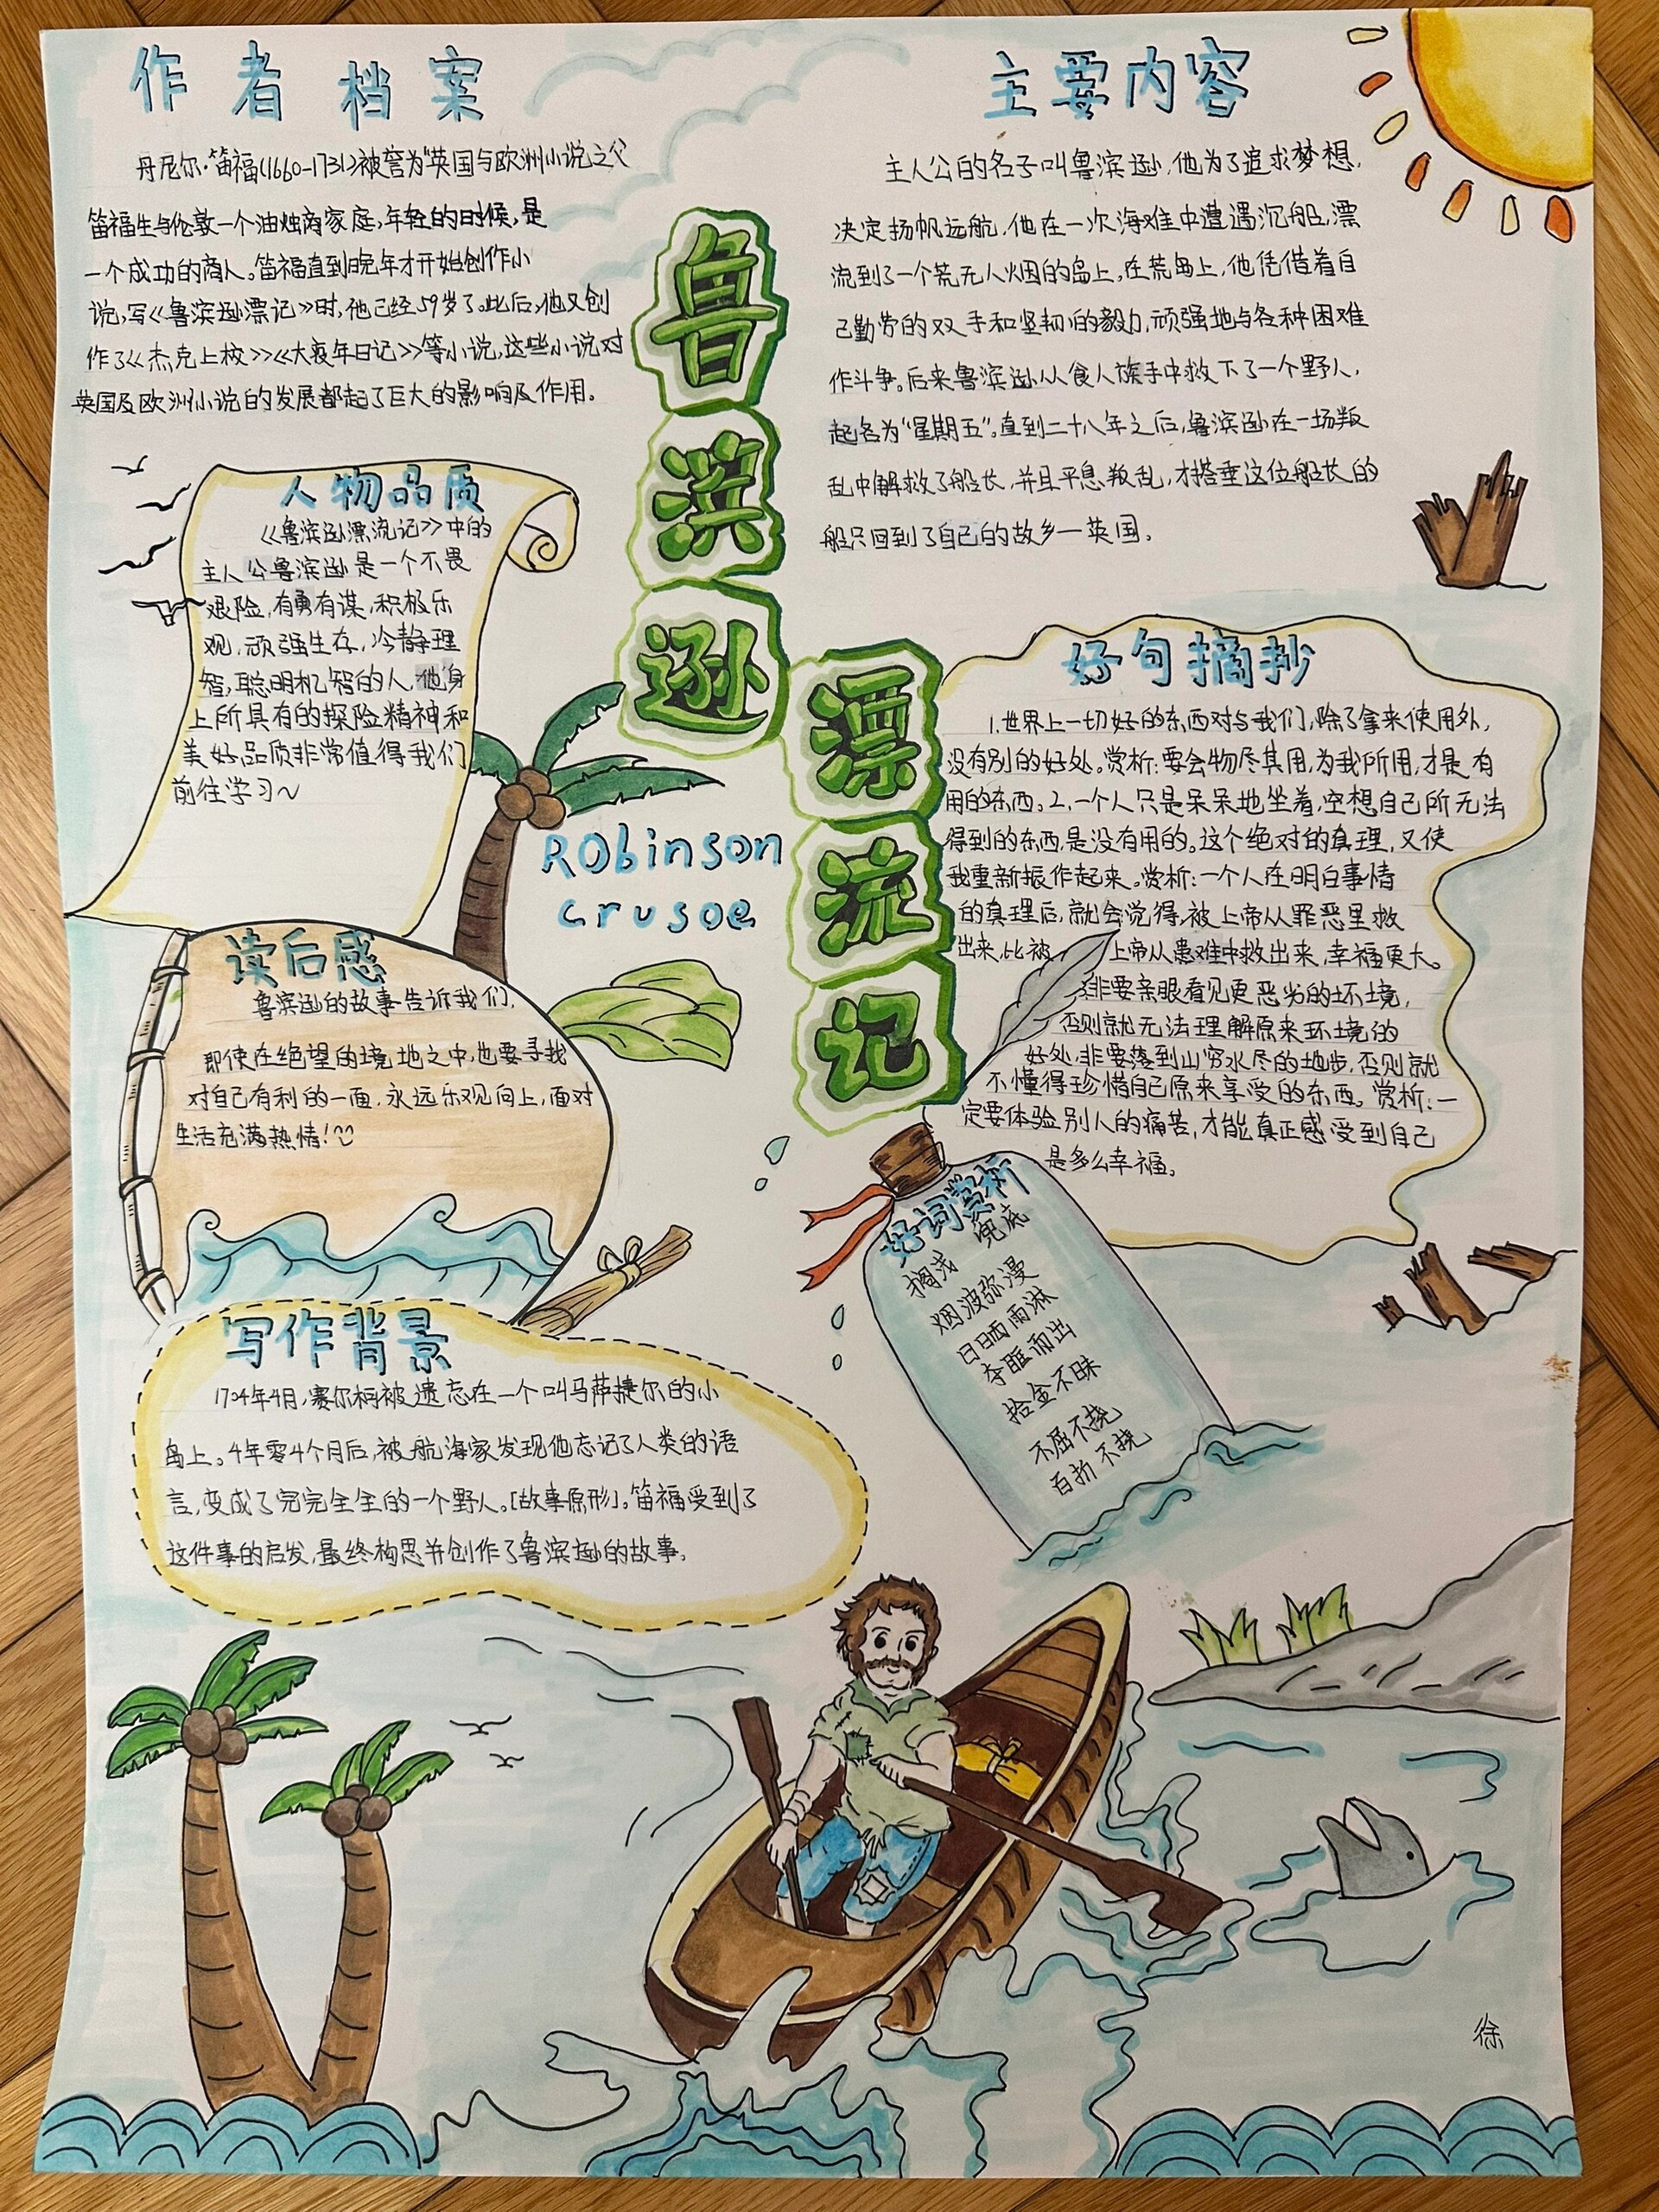 作者档案
丹尼尔·笛福(1660-1731)被誉为"英国与欧洲小说之父
笛福生与伦敦一个油烛商家庭,年轻的时候,是
一个成功的商人。笛福直到晚年才开始创作小
说,写《鲁滨逊漂记》时,他已经59岁了。此后,他又创
作了《杰克上校》《大疫年日记》等小说,这些小说对
英国及欧洲小说的发展都起了巨大的影响及作用。
主要内容
主人公的名子叫鲁滨逊,他为了追求梦想,
决定扬帆远航,他在一次海难中遭遇沉船,漂
流到了一个荒无人烟的岛上。在荒岛上,他凭借着自
己勤劳的双手和坚韧的毅力,顽强地与各种困难
作斗争。后来鲁滨逊从食人族手中救下了一个野人,
起名为"星期五"。直到二十八年之后,鲁滨逊在一场叛
乱中解救了船长,并且平息叛乱,才搭乘这位船长的
船只回到了自己的故乡一英国。
鲁滨逊漂流记
Robinson
crusoe
人物品质
《鲁滨逊漂流记》中的
主人公鲁滨逊是一个不畏
艰险,有勇有谋,积极乐
观,顽强生存,冷静理
智,聪明机智的人,他身
上所具有的探险精神和
美好品质非常值得我们
前往学习~
好句摘抄
1.世界上一切好的东西对与我们,除了拿来使用外,
没有别的好处。赏析:要会物尽其用,为我所用,才是有
用的东西。2.一个人只是呆呆地坐着,空想自己所无法
得到的东西,是没有用的。这个绝对的真理,又使
我重新振作起来。赏析:一个人在明白事情
的真理后,就会觉得,被上帝从罪恶里救
出来,比被上帝从患难中救出来,幸福更大。
非要亲眼看见更恶劣的坏境,
否则就无法理解原来环境的
好处,非要落到山穷水尽的地步,否则就
不懂得珍惜自己原来享受的东西。赏析:一
定要体验别人的痛苦,才能真正感受到自己
是多么幸福。
读后感
鲁滨逊的故事告诉我们,
即使在绝望的境地之中,也要寻找
对自己有利的一面,永远乐观向上,面对
生活充满热情!
好词赏析
搁浅 兜底
烟波弥漫
日晒雨淋
夺眶而出
拾金不昧
不屈不挠
百折不挠
写作背景
1704年4月,赛尔柯被遗忘在一个叫马萨捷尔的小
岛上。4年零4个月后,被航海家发现他忘记了人类的语
言,变成了完完全全的一个野人。[故事原形]。笛福受到了
这件事的启发,最终构思并创作了鲁滨逊的故事。
徐